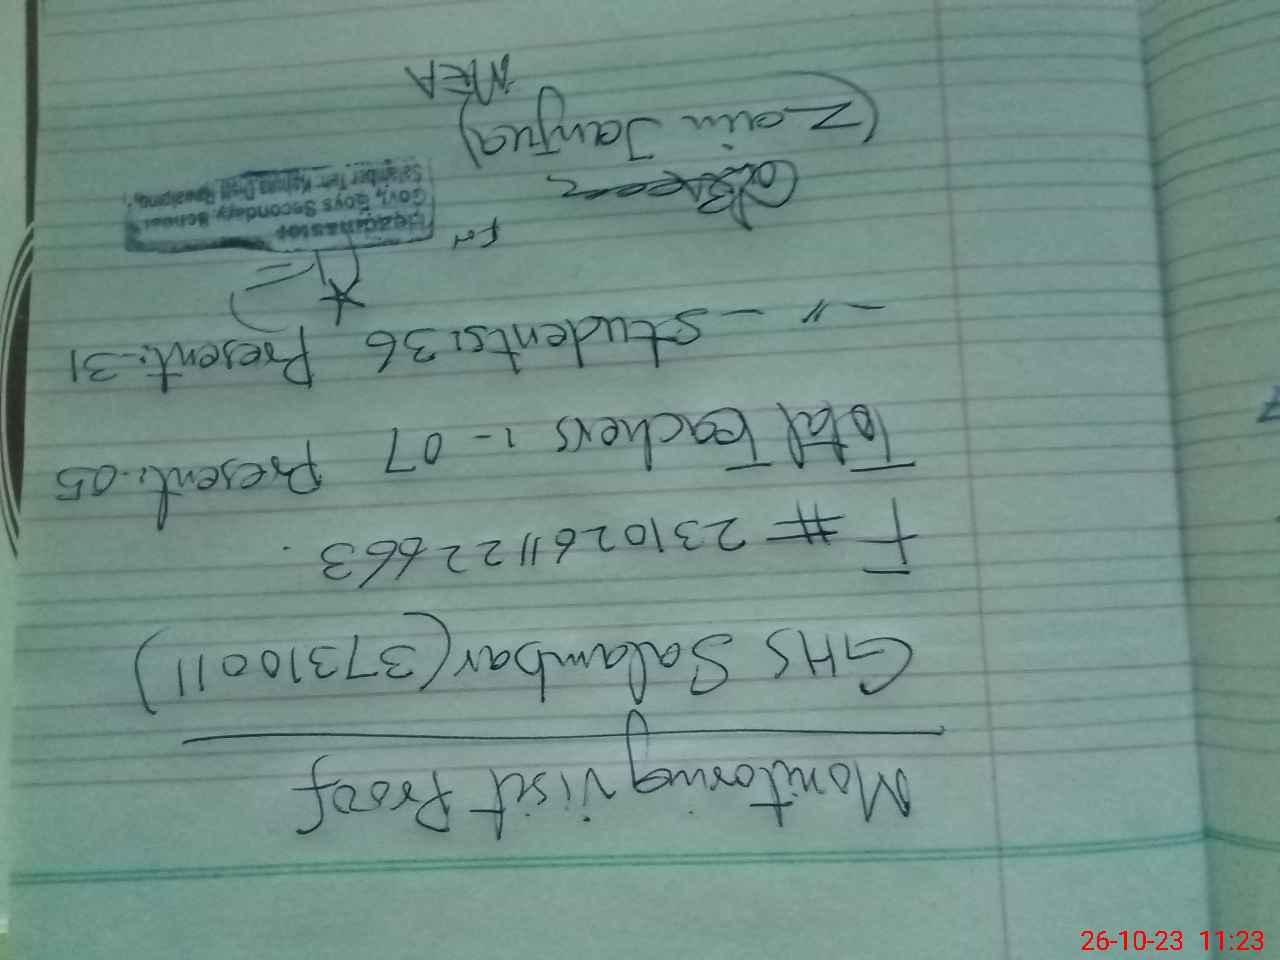 Monitoring Visit Proof
GHS Salambar (37310011)
F # 231026112 2663.
Total Teachers :- 07 Present:-05
-〃- Students: 36 Present:-31
For
Headmaster
Govt. Boys Secondary School
Salamber Teh: Kahuta Distt Rawalpindi
(Zain Janjua)
MEA
26-10-23 11:23